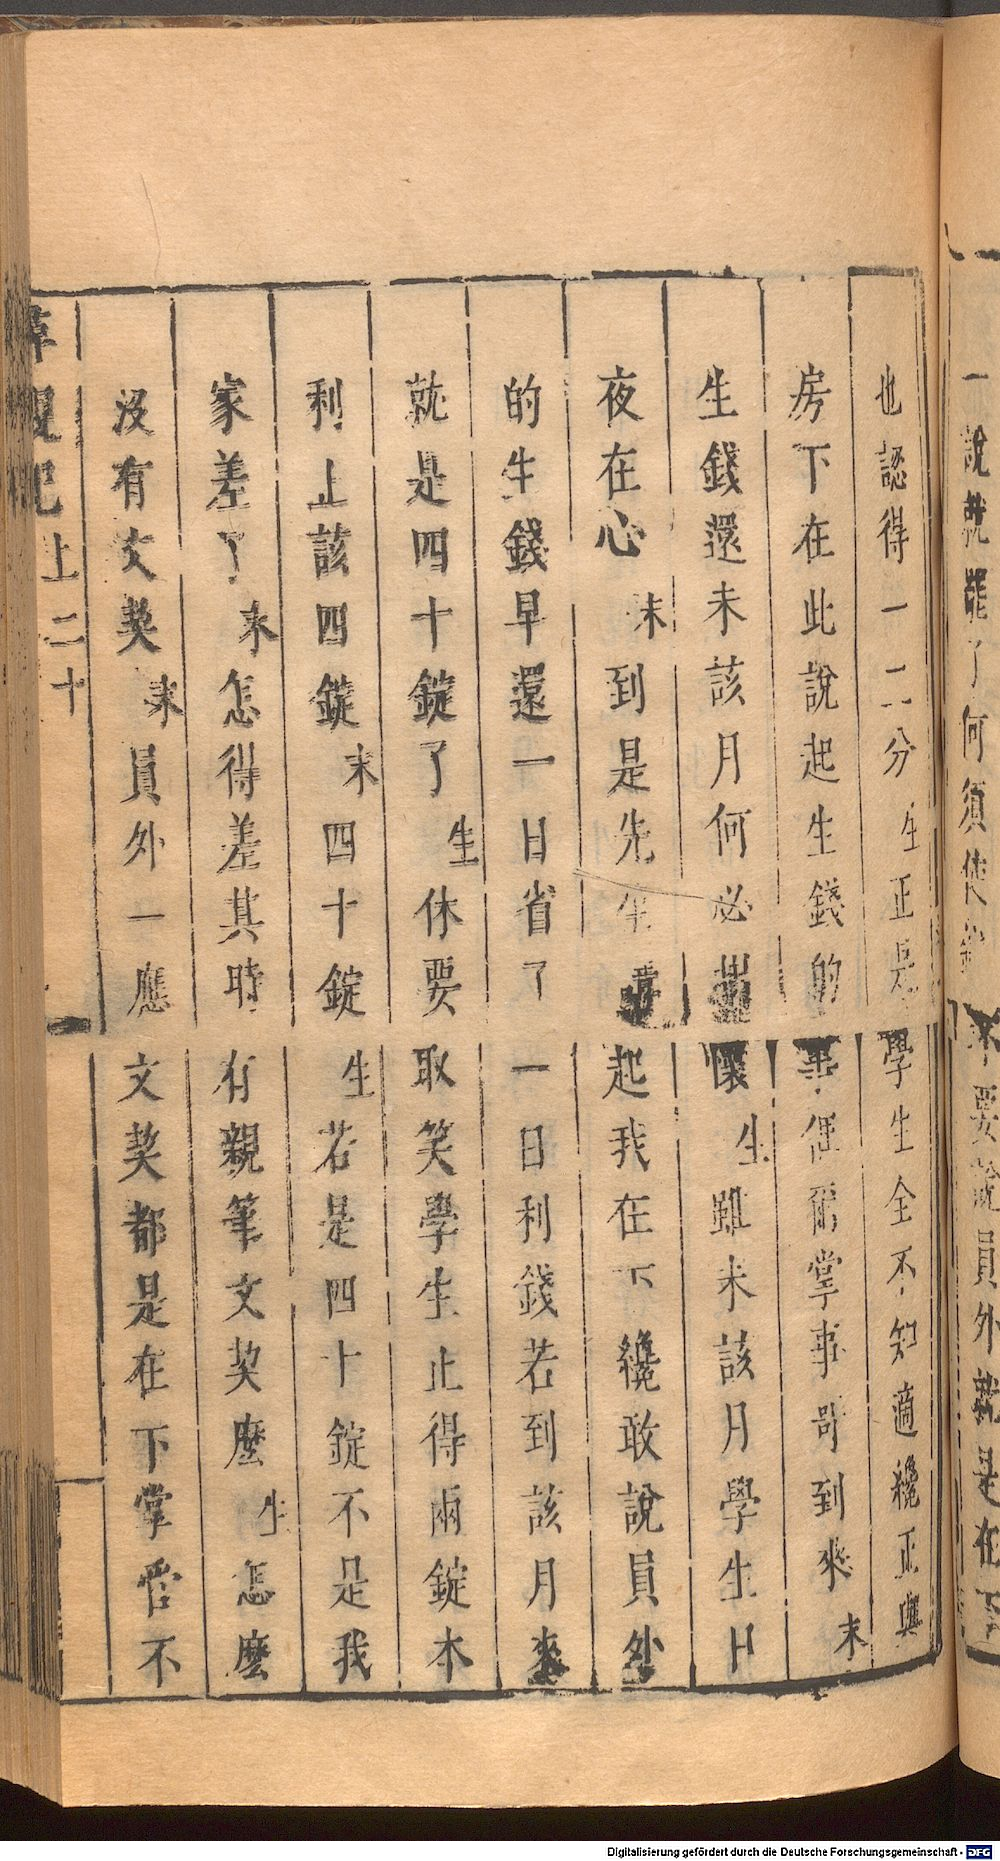 一說就罷了何須使
不要說員外就是在下
也認得一二分生正是學生全不知適纔正與
房下在此說起生錢的事便
掌事哥到來末
生錢還未該月何必
懷生雖未該月學生日
夜在心末到是先生
起我在下纔敢說員外
的生錢早還一日省了一日利錢若到該月來
就是四十錠了生休要取笑學生止得兩錠本
利止該四錠末四十錠生若是四十錠不是我
家差了末怎得差其時有親筆文契麼生怎麼
沒有文契末員外一應文契都是在下掌管不
記上二十
Digitalisierung gefördert durch die Deutsche Forschungsgemeinschaft - DFG